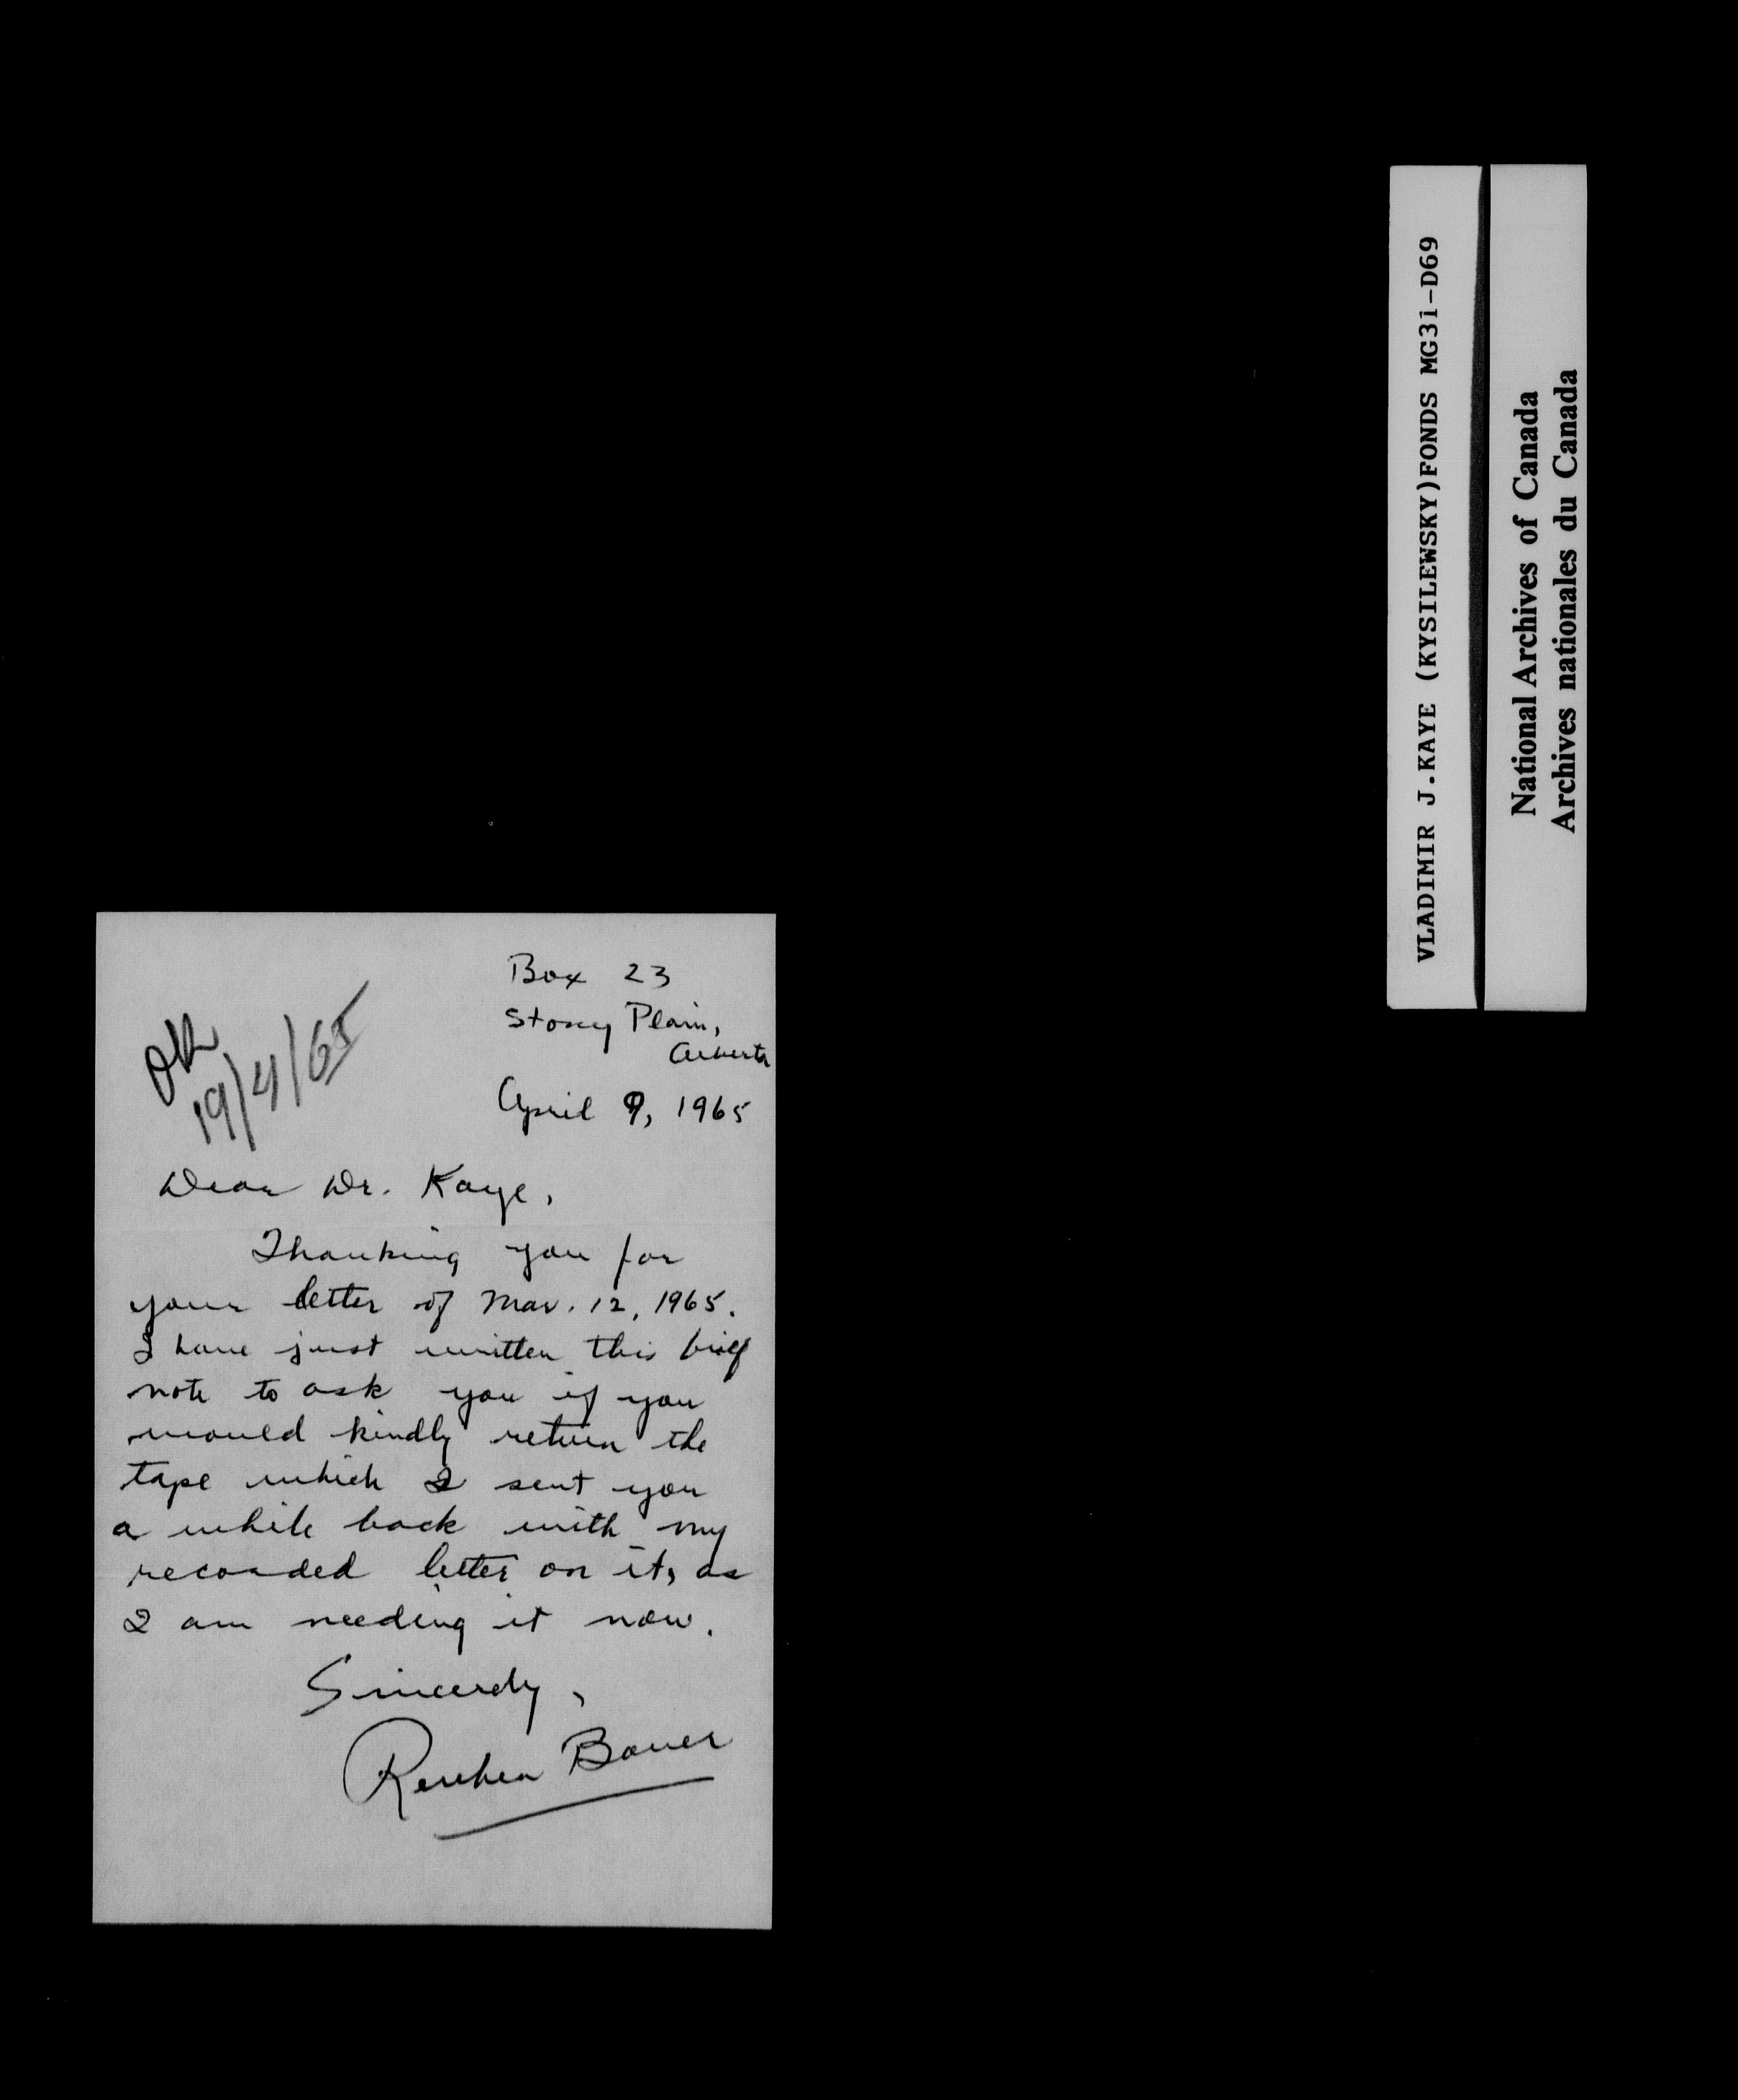 Box 23
Stony Plain,
Alberta
April 9, 1965
OK
19/4/65
Dear Dr. Kaye,
Thanking you for
your letter of Mar. 12, 1965.
I have just written this brief
note to ask you if you
would kindly return the
tape which I sent you
a while back with my
recorded letter on it, as
I am needing it now.
Sincerely,
Reuben Bauer
VLADIMIR J.KAYE (KYSILEWSKY)FONDS MG31-D69
National Archives of Canada
Archives nationales du Canada